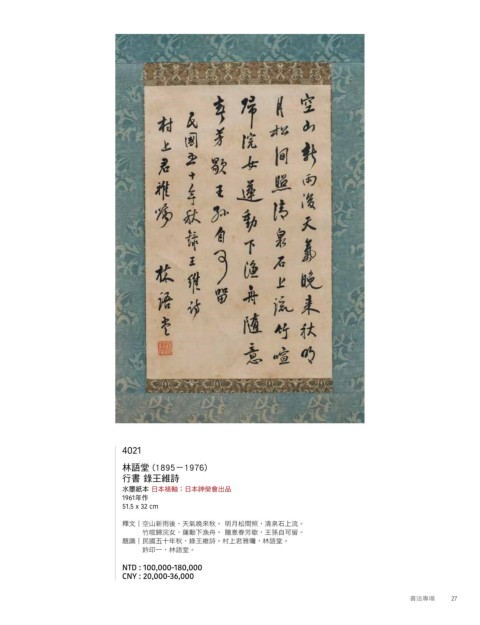 空山新雨後天氣晚來秋明
月松間照清泉石上流竹喧
歸浣女蓮動下漁舟隨意
春芳歇王孫自可留
民國五十年秋錄王維詩
村上君雅囑 林語堂
4021
林語堂 (1895－1976)
行書 錄王維詩
水墨紙本 日本裱軸；日本紳榮會出品
1961年作
51.5 x 32 cm
釋文｜空山新雨後，天氣晚來秋。 明月松間照，清泉石上流。
竹喧歸浣女，蓮動下漁舟。 隨意春芳歇，王孫自可留。
題識｜民國五十年秋，錄王維詩。村上君雅囑，林語堂。
鈐印一，林語堂。
NTD : 100,000-180,000
CNY : 20,000-36,000
書法專場 27